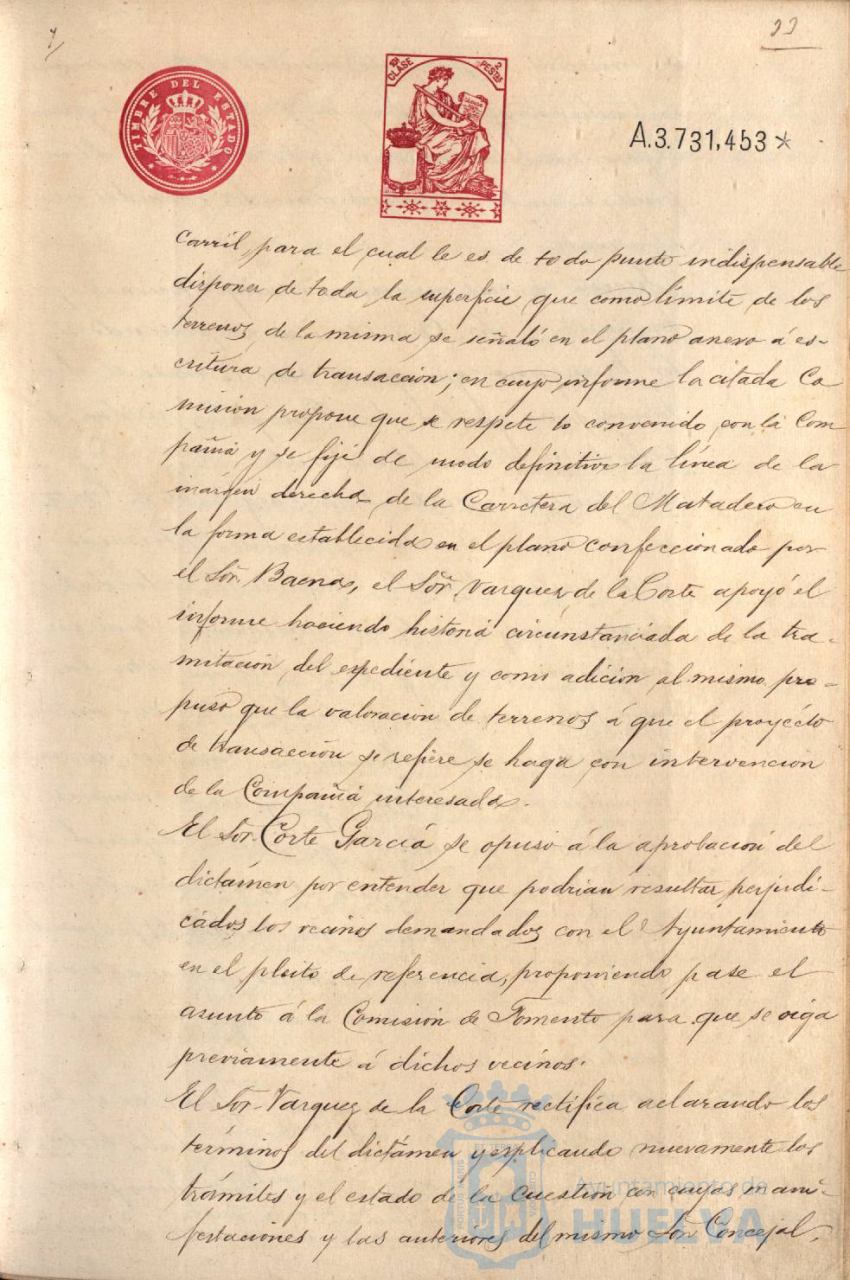 33
TIMBRE DEL ESTADO
10ª CLASE 2 PESTAS
A.3.731,453*
Carril, para el cual le es de todo punto indispensable
disponer de toda la superficie que como límite de los
terrenos de la misma se señaló en el plano anexo á es-
critura de transacción; en cuyo informe la citada Co
misión propone que se respete lo convenido con la Com
pañia y se fije de modo definitivo la línea de la
márgen derecha de la Carretera del Matadero en
la forma establecida en el plano confeccionado por
el Sor. Baena, el Sor. Vazquez de la Corte apoyó el
informe haciendo historia circunstanciada de la tra-
mitación del expediente y como adición al mismo pro-
puso que la valoración de terrenos á que el proyécto
de transacción se refiere se haga con intervención
de la Compañia interesada.
El Sor. Corte García se opuso á la aprobación del
dictámen por entender que podrian resultar perjudi-
cados los vecinos demandados con el Ayuntamiento
en el pleito de referencia, proponiendo pase el
asunto á la Comisión de Fomento para que se oiga
previamente á dichos vecinos.
El Sor. Vazquez de la Corte rectifica aclarando los
términos del dictámen y esplicando nuevamente los
trámites y el estado de la cuestión con cuyas mani-
festaciones y las anteriores del mismo Sor. Concejal,
Ayuntamiento de
HUELVA